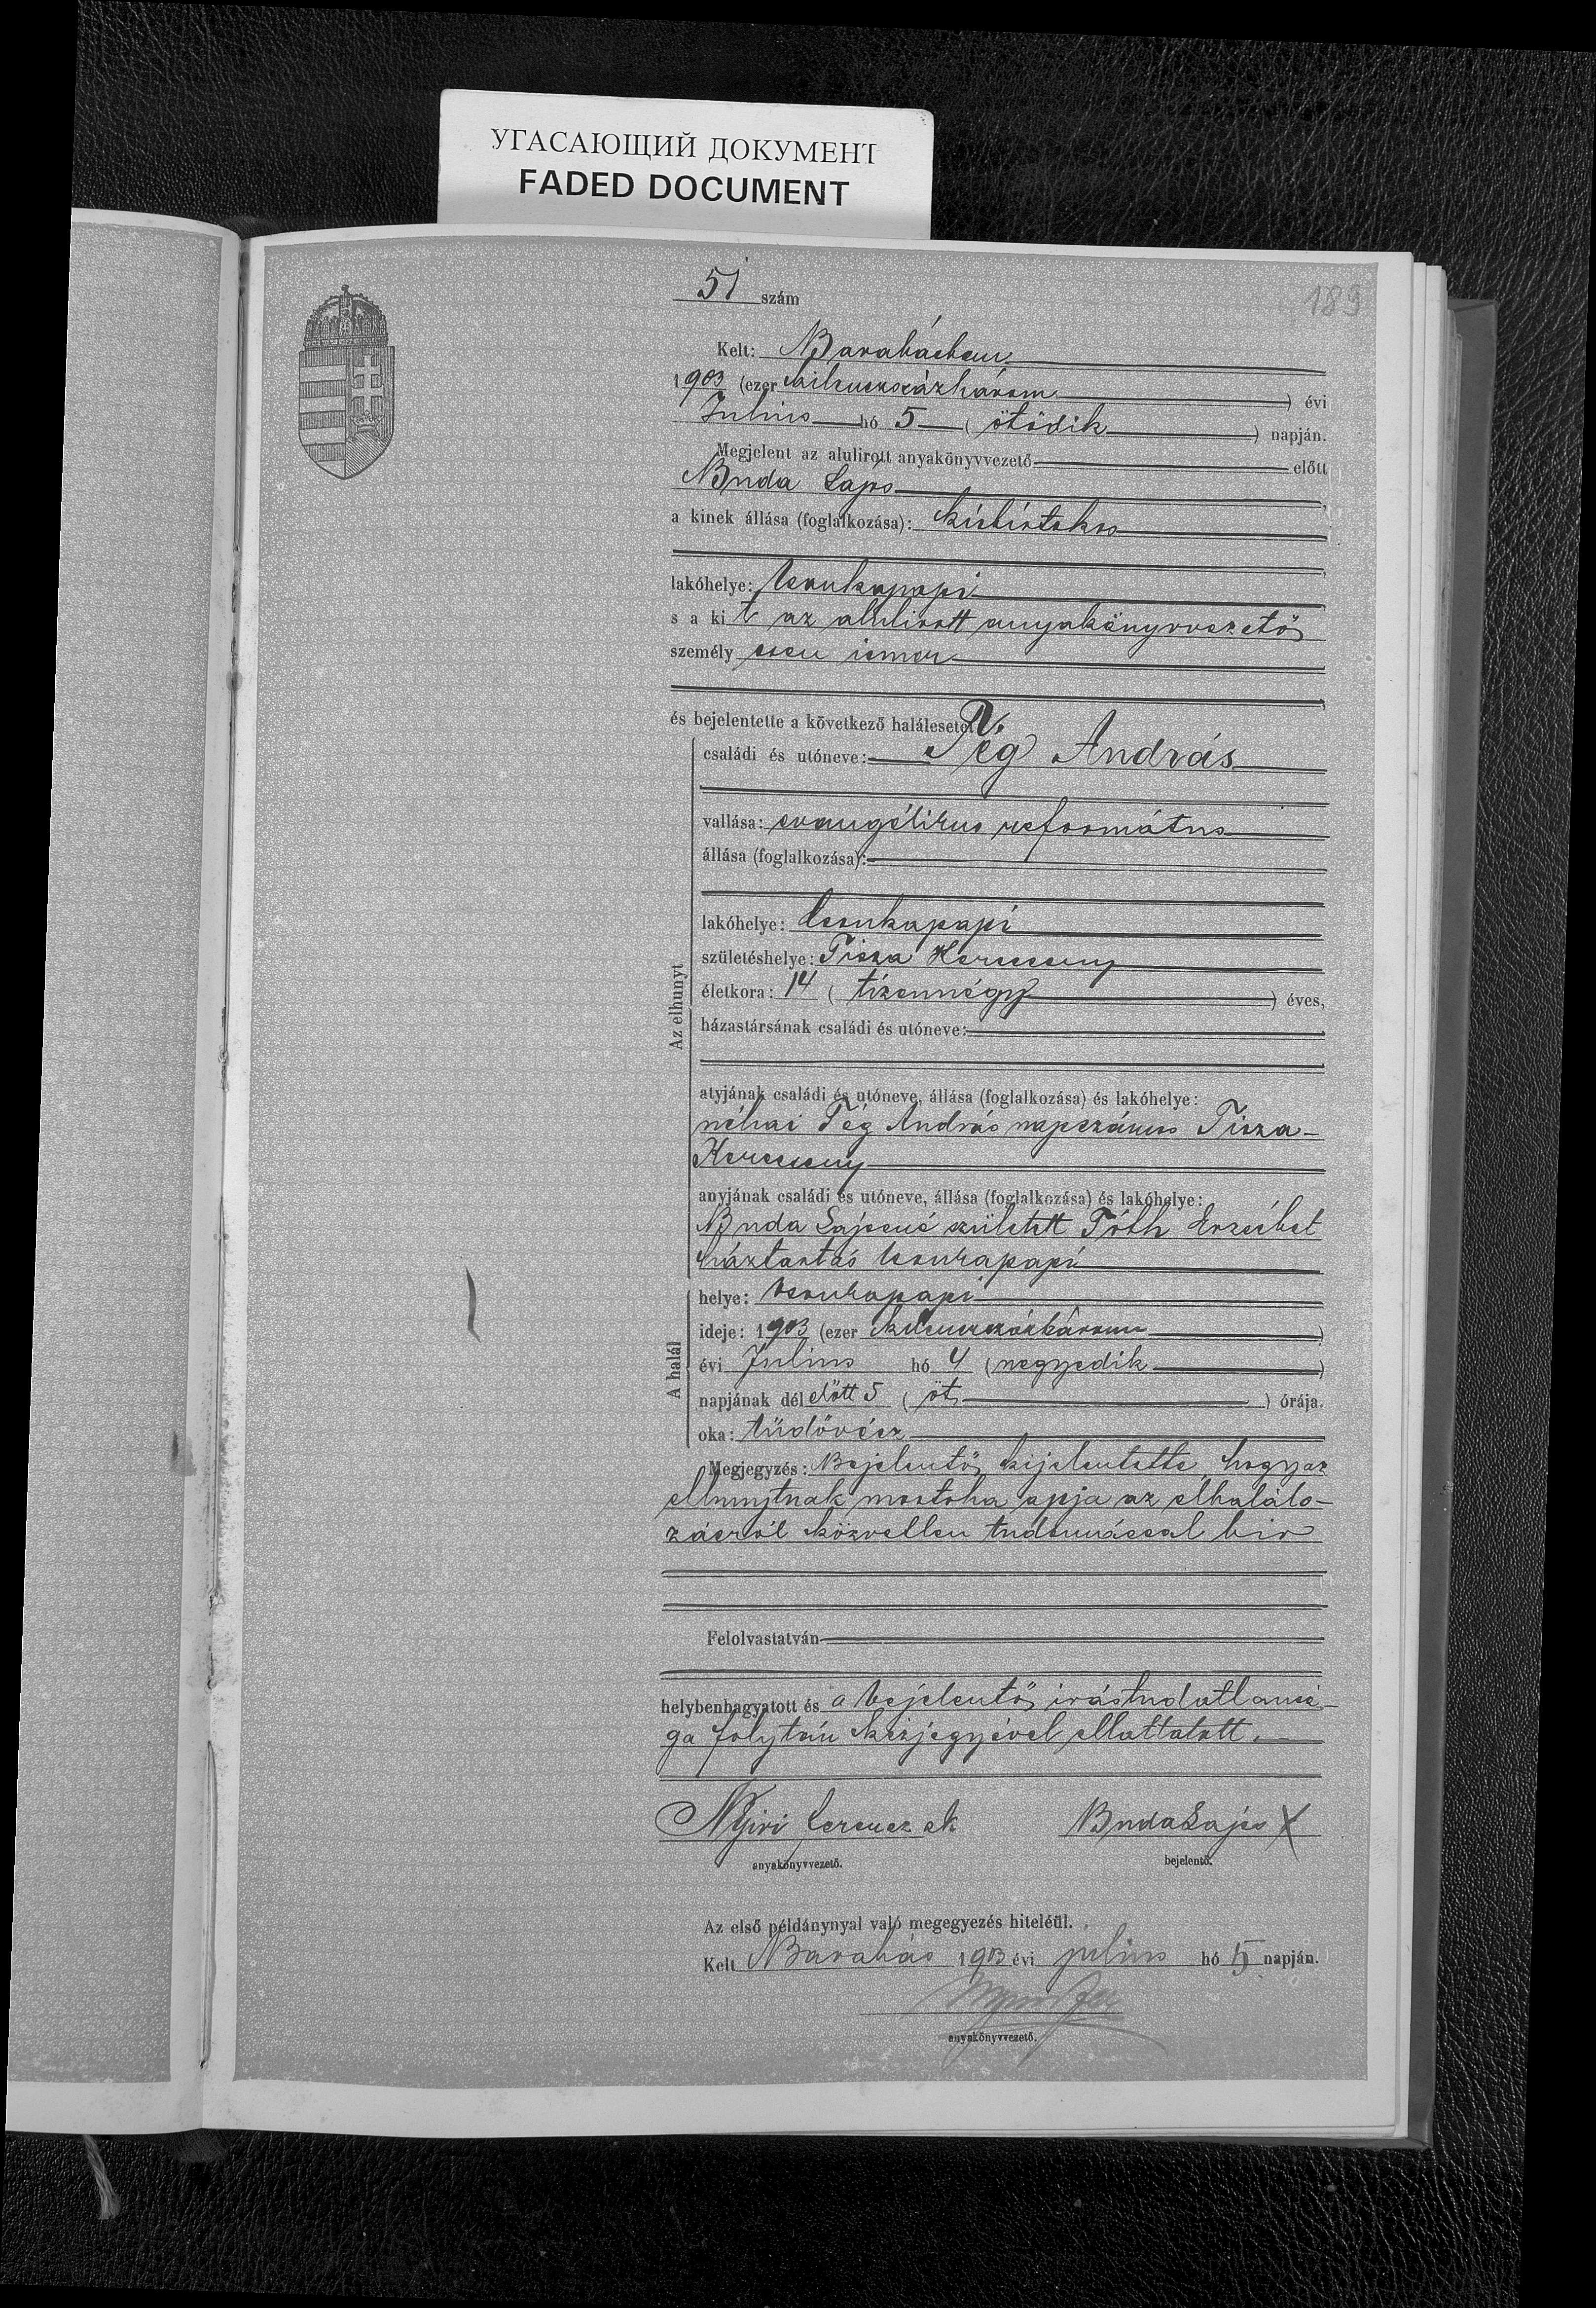 УГАСАЮЩИЙ ДОКУМЕНТ
FADED DOCUMENT
189
51 szám
Kelt: Barabásban
1903 (ezer kilenczszázhárom) évi
Julius hó 5 (ötödik) napján.
Megjelent az alulirott anyakönyvvezető előtt
Buda Lajos
a kinek állása (foglalkozása): kisbirtokos
lakóhelye: Csonkapapi
s a kit az alulirott anyakönyvvezető
személyesen ismer
és bejelentette a következő halálesetet:
családi és utóneve: Tég András
vallása: evangélikus református
állása (foglalkozása):
lakóhelye: Csonkapapi
születéshelye: Tisza Kerecseny
életkora: 14 (tizennégy) éves,
házastársának családi és utóneve:
Az elhunyt
atyjának családi és utóneve, állása (foglalkozása) és lakóhelye:
néhai Tég András napszámos Tisza-
Kerecseny
anyjának családi és utóneve, állása (foglalkozása) és lakóhelye:
Buda Lajosné született Tóth Erzsébet
háztartás Csonkapapi
helye: Csonkapapi
ideje: 1903 (ezer kilenczszázhárom)
évi Julius hó 4 (negyedik)
A halál
napjának délelőtt 5 (öt) órája.
oka: tüdővész
Megjegyzés: Bejelentő kijelentette, hogy az
elhunytnak mostoha apja az elhalálo-
zásról közvetlen tudomással bir
Felolvastatván
helybenhagyatott és a bejelentő irástudatlansá-
ga folytán kézjegyével elláttatott.
Nyiri Ferencz sk Buda Lajos X
anyakönyvvezető. bejelentő.
Az első példánynyal való megegyezés hiteléül.
Kelt Barabás 1903 évi julius hó 5 napján.
anyakönyvvezető.